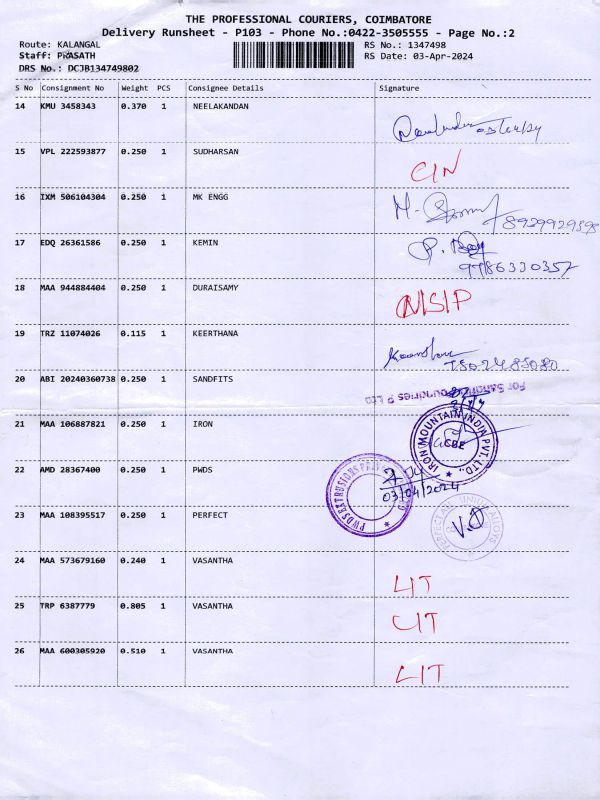 THE PROFESSIONAL COURIERS, COIMBATORE
Delivery Runsheet - P103 - Phone No.:0422-3505555 - Page No.:2
Route: KALANGAL RS No.: 1347498
Staff: PRASATH RS Date: 03-Apr-2024
DRS No.: DCJB134749802
S No Consignment No Weight PCS Consignee Details Signature
14 KMU 3458343 0.370 1 NEELAKANDAN
15 VPL 222593877 0.250 1 SUDHARSAN
C/N
16 IXM 506104304 0.250 1 MK ENGG
8939929398
17 EDQ 26361586 0.250 1 KEMIN
9786330357
18 MAA 944884404 0.250 1 DURAISAMY
N/S/P
19 TRZ 11074026 0.115 1 KEERTHANA
7502485080
20 ABI 20240360738 0.250 1 SANDFITS
21 MAA 106887821 0.250 1 IRON
IRON MOUNTAIN INDIA PVT. LTD.,
CBE
22 AMD 28367400 0.250 1 PWDS
03/04/2024
23 MAA 108395517 0.250 1 PERFECT
24 MAA 573679160 0.240 1 VASANTHA
LIT
25 TRP 6387779 0.805 1 VASANTHA
LIT
26 MAA 600305920 0.510 1 VASANTHA
LIT